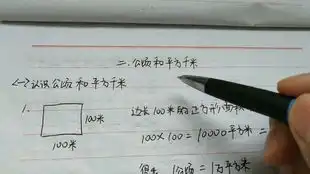 二. 公顷和平方千米
<一>认识公顷和平方千米
1.
100米
100米
边长100米的正方形面积
100×100=10000平方米=
1公顷=1万平方米